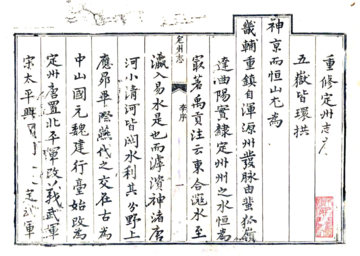 重修定州志序
五嶽皆環拱
神京而恒山尤為
畿輔重鎮自渾源州發脈由蜚狐嶺
達曲陽實隸定州州之水恒為
㝡著禹貢注云東合滱水至
瀛入易水是也而滹濱神渚唐
河小清河皆關水利其分野上
應昴畢際燕代之交在古為
中山國元魏建行臺始改為
定州唐置北平軍改義武軍
宋太平興 定武軍
定州志
李序
一